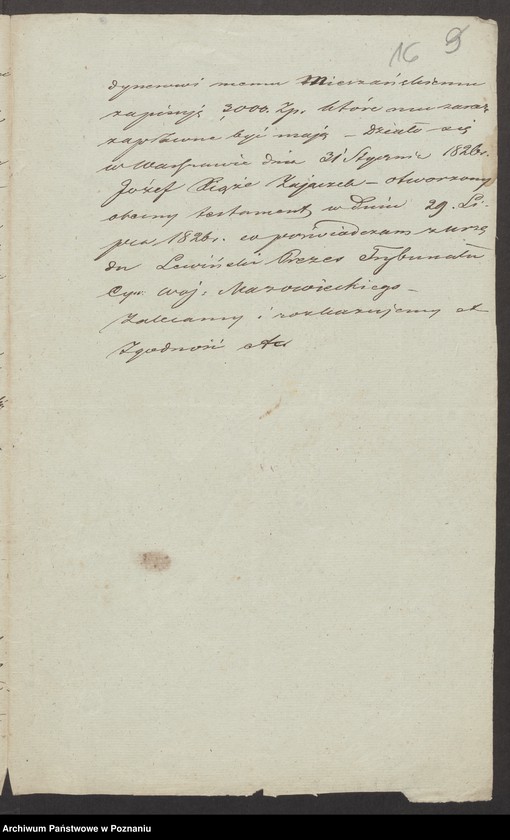 16 9
dynowi memu Mieczańskiemu
zapisuję 3000 Zp. które mu zaraz
zapłacone być mają – działo się
w Warszawie dnia 31 Stycznia 1826 r.
Jozef Xiąże Zajaczek – otworzony
obecny testament w Dniu 29. Li-
pca 1826 r. co poświadczam z urzę
du Lewiński Prezes Trybunału
Cyw: woj: Mazowieckiego –
Zalecamy i rozkazujemy et
Zgodność
Archiwum Państwowe w Poznaniu